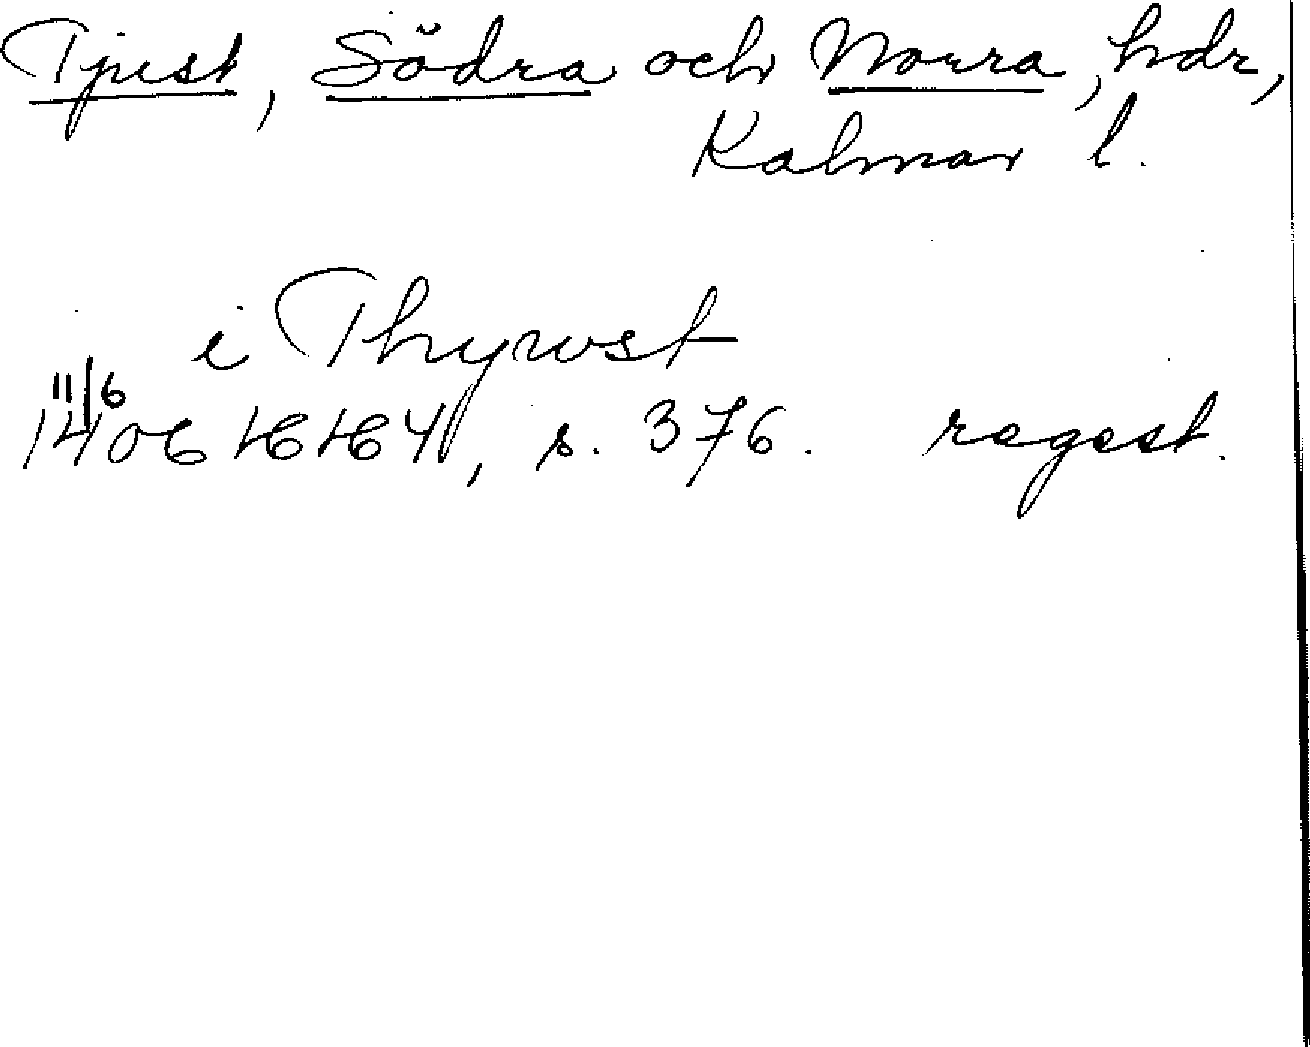 Tjust, Södra och Norra, hdr,
Kalmar l.
i Thywst
11/6
1406 s. 376. regest.